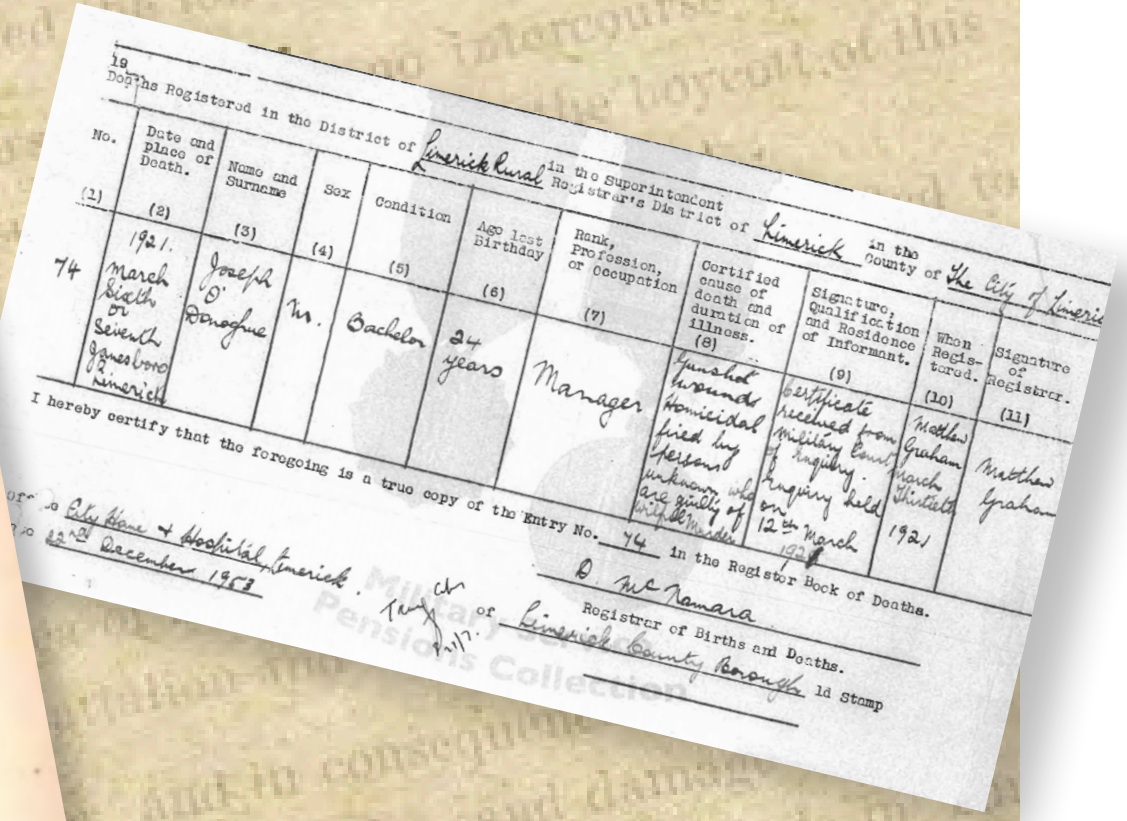 19
Deaths Registered in the District of Limerick Rural in the Superintendent Registrar's District of Limerick in the County of The City of Limeric
No.
(1)
Date and
place of
Death.
(2)
Name and
Surname
(3)
Sex
(4)
Condition
(5)
Age last
Birthday
(6)
Rank,
Profession,
or Occupation
(7)
Certified
cause of
death and
duration of
illness.
(8)
Signature,
Qualification
and Residence
of Informant.
(9)
When
Regis-
tered.
(10)
Signature
of
Registrar.
(11)
74
1921.
March
Sixth
or
Seventh
Janesboro
Limerick
Joseph
O'
Donoghue
M.
Bachelor
24
years
Manager
Gunshot
wounds
Homicidal
fired by
persons
unknown who
are guilty of
wilful Murder
Certificate
received from
Military Court
of Enquiry.
Enquiry held
on
12th March
1921
Matthew
Graham
March
Thirtieth
1921
Matthew
Graham
I hereby certify that the foregoing is a true copy of the Entry No. 74 in the Register Book of Deaths.
City Home & Hospital, Limerick.
22nd December 1953
D. McNamara
Registrar of Births and Deaths.
of Limerick County Borough ld Stamp
Military Service
Pensions Collection
no intercourse
the boycott of this
and in consequen
and damage